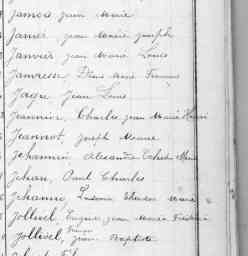 Jamois Jean Marie
Janier Jean Marie Joseph
Janvier Jean Marie Louis
Janvresse Marie François
Jagu Jean Louis
Jeannin Charles Jean Marie Henri
Jeannot Joseph Marie
Jehannin Alexandre Marie
Jéhan Paul Charles
Jéhanne Marie
Jollivel Eugène Jean Marie Frédéric
Jollivel, François Jean Baptiste